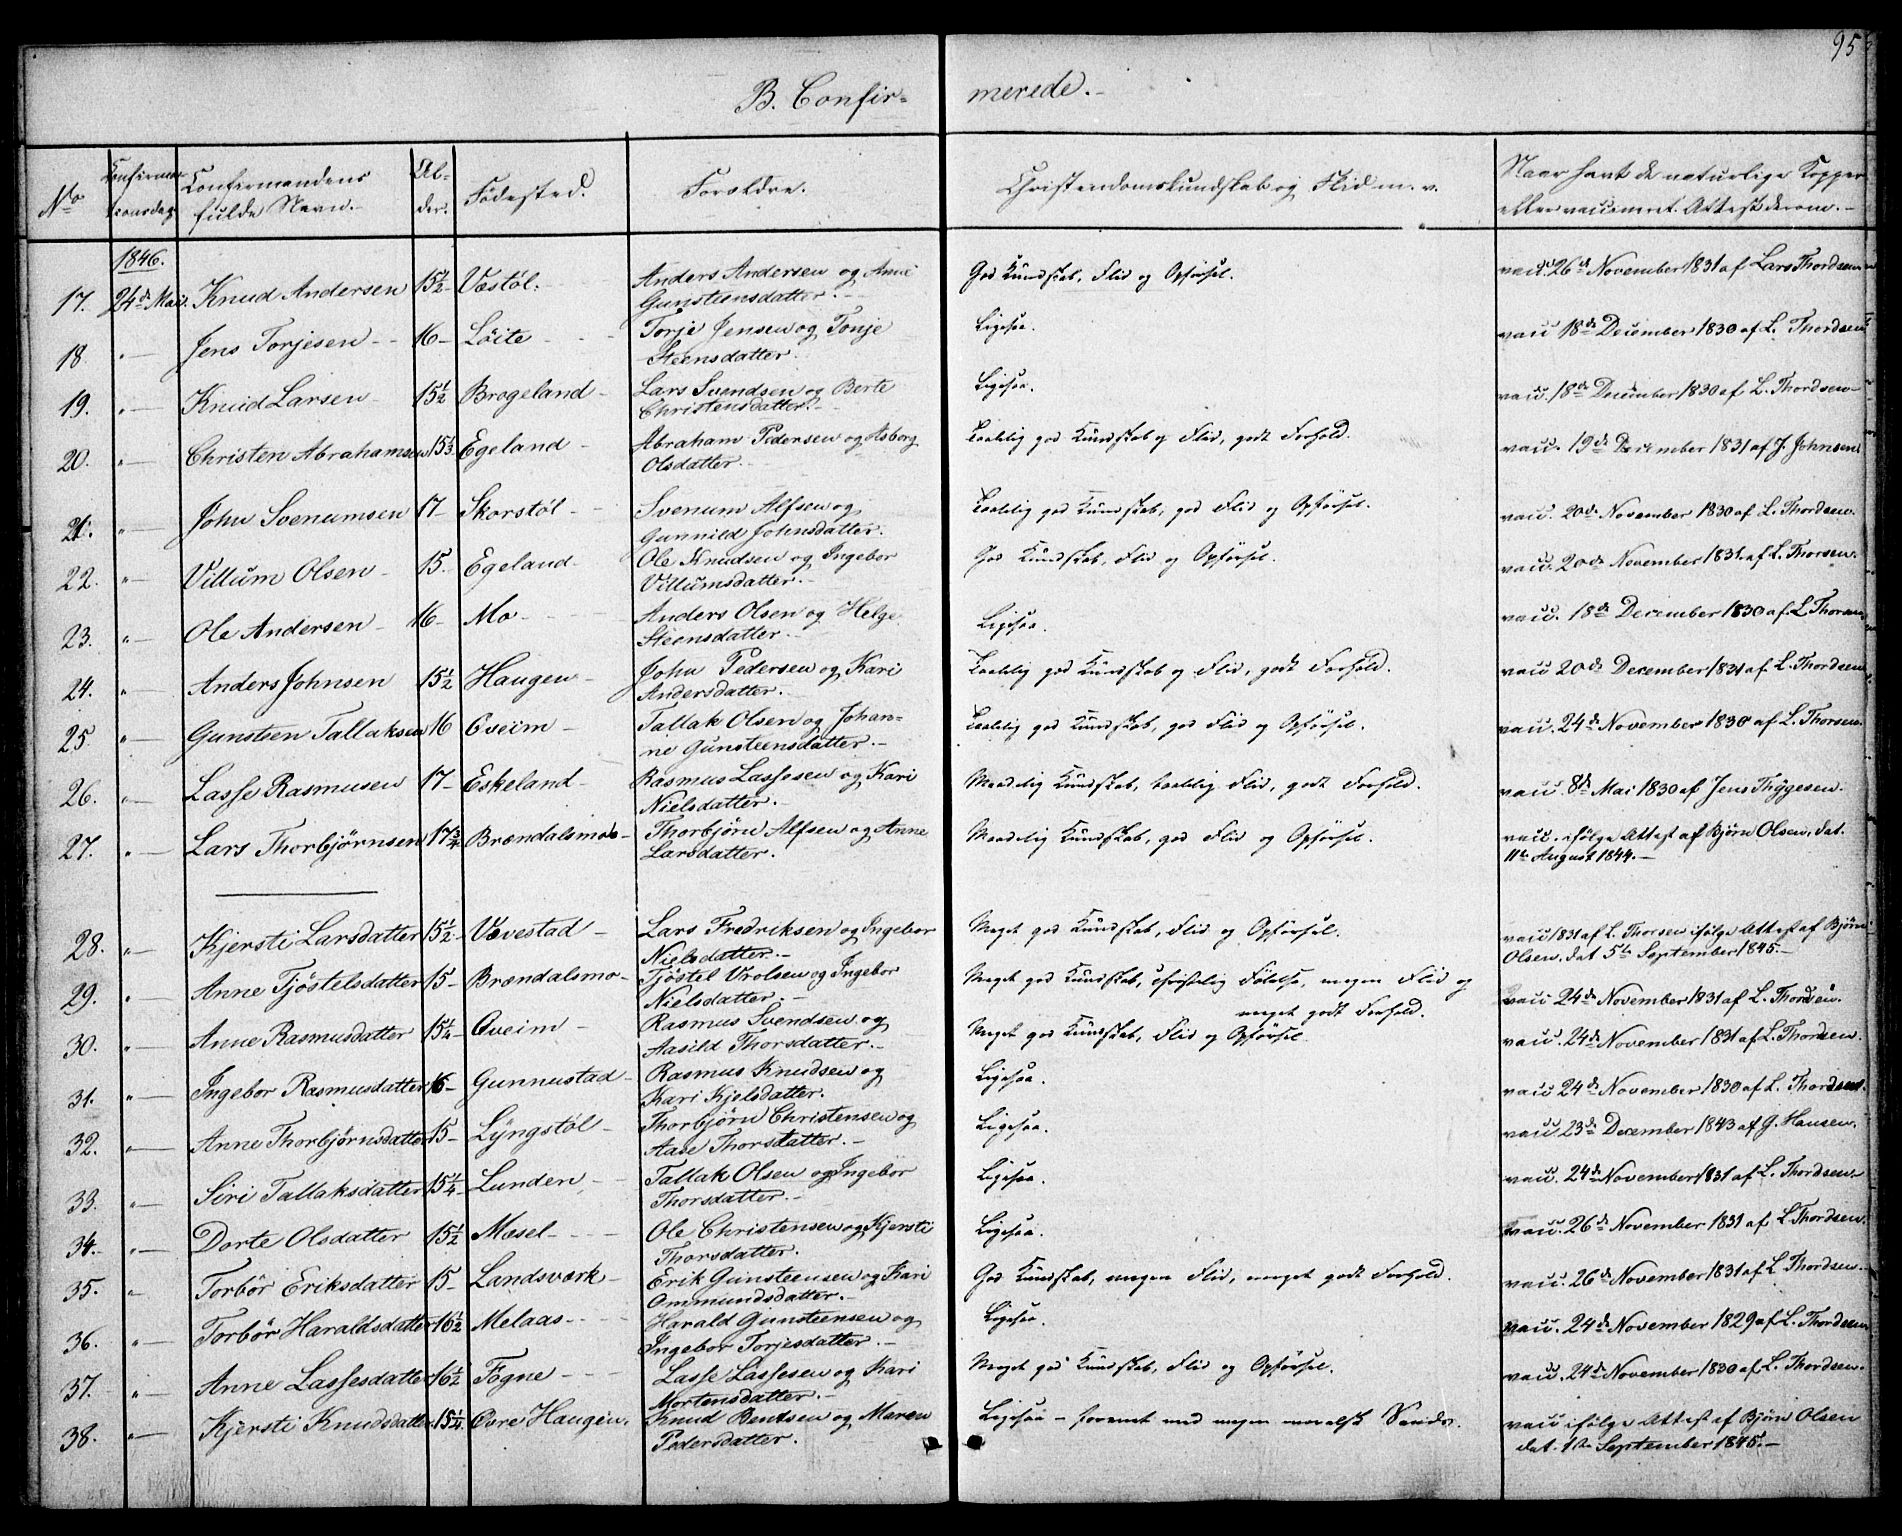 95
B. Confir= merede.-
No Confirmationsdag. Confirmandens fulde Navn.- Alder. Fødested. Forældre. Christendomskundskab og Flid m. v. Naar havt de naturlige Kopper eller vaccineret. Attest derom.-
1846.
17. 24de Mai. Knud Andersen 15½ Væstøl. Anders Andersen og Anne Gunsteensdatter.- God Kundskab, Flid og Opførsel. vacc. 26de November 1831 af Lars Thordsen
18. " Jens Torjesen 16 Løite Torje Jensen og Tonje Steensdatter. Ligesaa. vacc 18de December 1830 af L. Thordsen
19. " Knud Larsen 15½ Brogeland Lars Svendsen og Berte Christensdatter.- Ligesaa. vacc. 18de December 1830 af L. Thordsen
20. " Christen Abrahamsen 15⅓ Egeland Abraham Pedersen og Asborg Olsdatter. Taalelig god Kundskab og Flid, godt Forhold. vacc. 19de December 1831 af J. Johnsen
21. " John Svenumsen 17 Skorstøl Svenum Alfsen og Gunnild Johnsdatter. Taalelig god Kundskab, god Flid og Opførsel. vacc. 20de November 1830 af L. Thordsen.
22. " Villum Olsen 15. Egeland Ole Knudsen og Ingebor Villumsdatter.- God Kundskab, Flid og Opførsel. vacc. 20de November 1831 af L. Thorsen.
23. " Ole Andersen 16 Mo Anders Olsen og Helge Steensdatter.- Ligesaa. vacc. 18de December 1830 af L Thorsen
24. " Anders Johnsen 15½ Haugen John Pedersen og Kari Andersdatter. Taalelig god Kundskab og Flid, godt Forhold. vacc 20de December 1831 af L. Thordsen
25 " Gunsten Tallaksen 16 Oveim Tallak Olsen og Johanne Gunsteensdatter.- Taalelig god Kundskab, god Flid og Opførsel. vacc. 24de November 1830 af L. Thorsen.
26. " Lasse Rasmusen 17 Eskeland Rasmus Lassesen og Kari Nielsdatter.- Maadelig Kundskab, taalelig Flid, godt Forhold. vacc. 8de Mai 1830 af Jens Thygesen.
27. " Lars Thorbjørnsen 17¾ Brændalsmo Thorbjørn Alfsen og Anne Larsdatter. Maadelig Kundskab, god Flid og Opførsel. vacc. ifølge Attest af Bjørn Olsen, dat. 11te August 1844.-
28. " Kjersti Larsdatter 15½ Vævestad Lars Fredriksen og Ingebor Nielsdatter.- Meget god Kundskab, Flid og Opførsel. vacc 1831 af L. Thorsen ifølge Attest af Bjørn Olsen, dat 5te September 1845.-
29. " Anne Tjøstelsdatter 15 Brændalsmo Tjøstel Vrolsen og Ingebor Nielsdatter.- Meget god Kundskab, christelig Følelse, megen Flid og meget godt Forhold. vacc 24de November 1831 af L. Thordsen.
30. " Anne Rasmusdatter 15¼ Oveim Rasmus Svendsen og Aasild Thorsdatter.- Meget god Kundskab, Flid og Opførsel. vacc. 24de November 1831 af L. Thordsen.
31. " Ingebor Rasmusdatter 16 Gunnustad Rasmus Knudsen og Kari Kjelsdatter. Ligesaa. vacc 24de November 1830 af L. Thordsen.
32. " Anne Thorbjørnsdatter 15 Lyngstøl Thorbjørn Christensen og Aase Thorsdatter.- Ligesaa. vacc 23de December 1843 af G. Hansen.
33. " Siri Tallaksdatter 15¼ Lunden Tallak Olsen og Ingebor Thorsdatter.- Ligesaa. vacc. 24de November 1831 af L. Thordsen.
34. " Dorte Olsdatter 15½ Mosel Ole Christensen og Kjersti Thorsdatter. Ligesaa. vacc. 26de November 1831 af L. Thordsen.
35. " Torbør Eriksdatter 15 Landsværk Erik Gunsteensen og Kari Ommundsdatter.- God Kundskab, megen Flid, meget godt Forhold. vacc. 26de November 1831 af L. Thordsen.
36. " Torbør Haraldsdatter 16½ Melaas Harald Gunsteensen og Ingebor Torjesdatter.- Ligesaa. vacc. 24de November 1829 af L. Thordsen
37. " Anne Lassesdatter 16½ Fogne Lasse Lassesen og Kari Mortensdatter.- Meget god Kundskab, Flid og Opførsel. vacc. 24de November 1830 af L. Thordsen.
38. " Kjersti Knudsdatter 15¼ Øvre Haugen. Knud Bentsen og Maren Pedersdatter. Ligesaa - forenet med megen moralsk Sands. vacc ifølge Attest af Bjørn Olsen dat. 1te September 1845.-